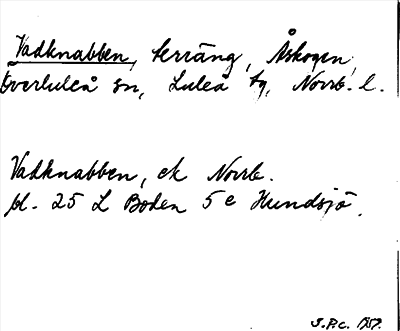 Vadknabben, terräng, Åskogen,
Överluleå sn, Luleå tg, Norrb. l.
Vadknabben, ek Norrb.
bl. 25 L Boden 5 e Hundsjö.
S.P.C. 1959.